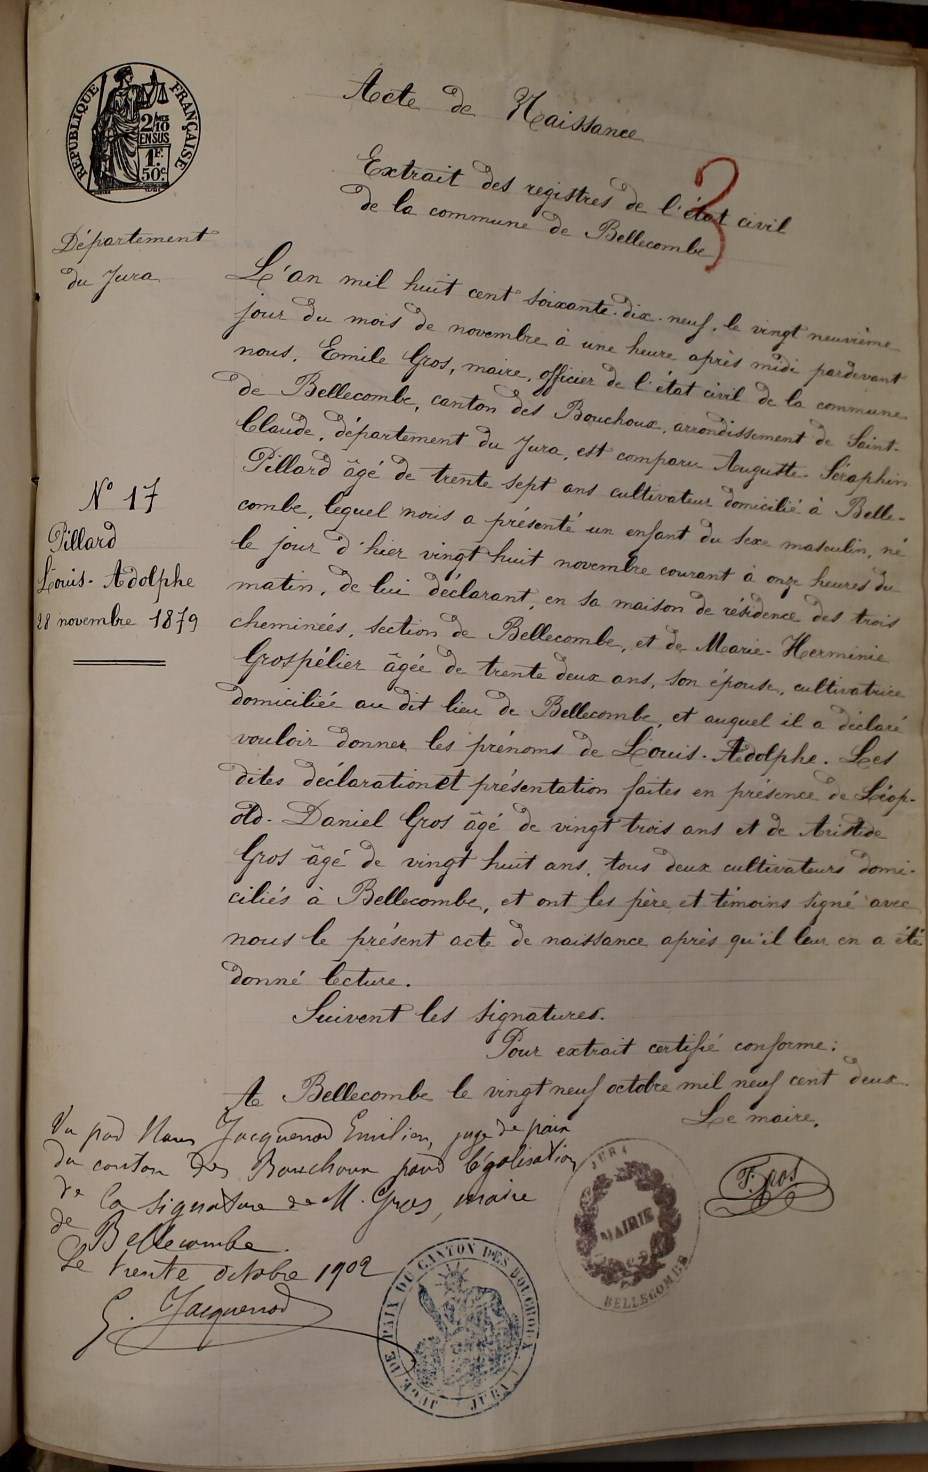 RÉPUBLIQUE FRANÇAISE
2/10
EN SUS
1F.
50c.
Acte de Naissance
3
Extrait des registres de l'état civil
de la commune de Bellecombe
Département
du Jura
L'an mil huit cent soixante-dix-neuf, le vingt neuvième
jour du mois de novembre à une heure après midi pardevant
nous, Emile Gros, maire, officier de l'état civil de la commune
de Bellecombe, canton des Bouchoux, arrondissement de Saint-
Claude, département du Jura, est comparu Auguste Séraphin
Pillard âgé de trente sept ans cultivateur domicilié à Belle-
combe, lequel nous a présenté un enfant du sexe masculin, né
le jour d'hier vingt huit novembre courant à onze heures du
matin, de lui déclarant, en sa maison de résidence des trois
cheminées, section de Bellecombe, et de Marie-Herminie
Grospélier âgée de trente deux ans, son épouse, cultivatrice
domiciliée au dit lieu de Bellecombe, et auquel il a déclaré
vouloir donner les prénoms de Louis-Adolphe. Les
dites déclaration et présentation faites en présence de Léop-
old-Daniel Gros âgé de vingt trois ans et de Aristide
Gros âgé de vingt huit ans, tous deux cultivateurs domi-
ciliés à Bellecombe, et ont les père et témoins signé avec
nous le présent acte de naissance après qu'il leur en a été
donné lecture.
N° 17
Pillard
Louis-Adolphe
28 novembre 1879
Suivent les signatures.
Pour extrait certifié conforme:
A Bellecombe le vingt neuf octobre mil neuf cent deux.
Le maire,
Gros
Vu par Nous Jacquenod Emilien, juge de paix
du canton des Bouchoux pour légalisation
de la signature de M. Gros, maire
de Bellecombe.
Le trente octobre 1902
E. Jacquenod
JURA
MAIRIE
BELLECOMBE
JUGE DE PAIX DU CANTON DES BOUCHOUX
JURA